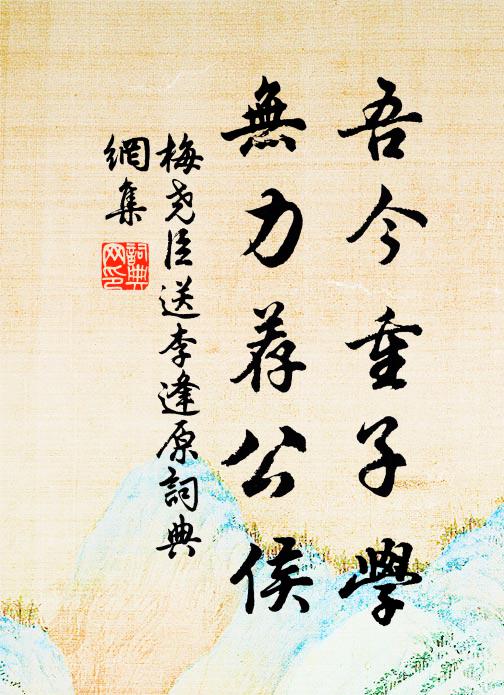 吾今重子學
無力荐公侯
梅尧臣送李逢原詞典
網集
詞典
网印